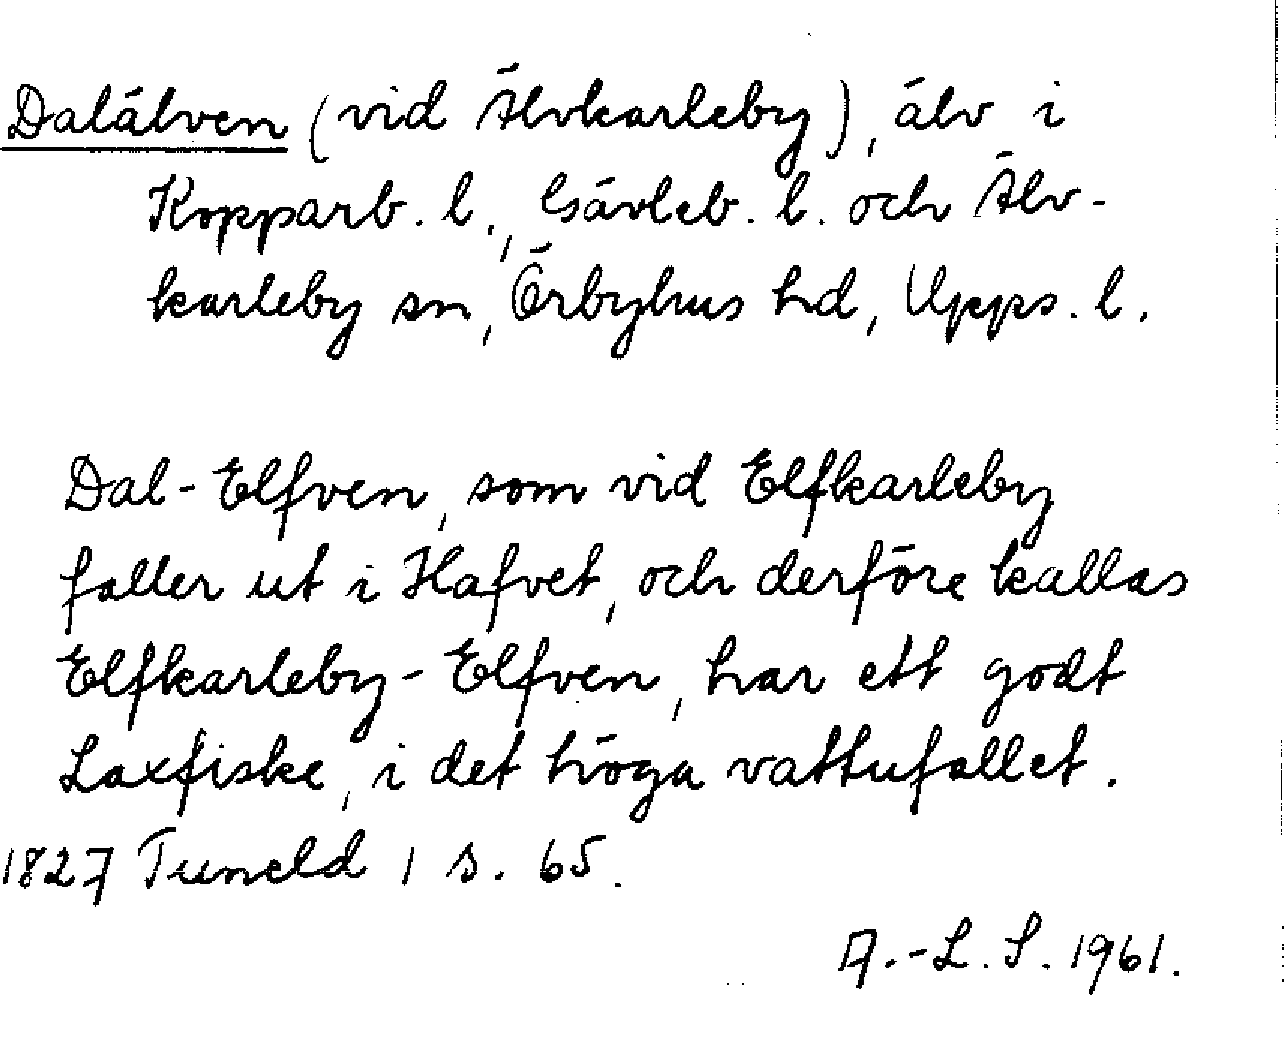 Dalälven (vid Älvkarleby), älv i
Kopparb. l., Gävleb. l. och Älv-
karleby sn, Örbyhus hd, Upps. l.
Dal-Elfven, som vid Elfkarleby
faller ut i Hafvet, och derföre kallas
Elfkarleby-Elfven, har ett godt
Laxfiske, i det höga vattufallet.
1827 Tuneld 1 s. 65.
A.-L. S. 1961.